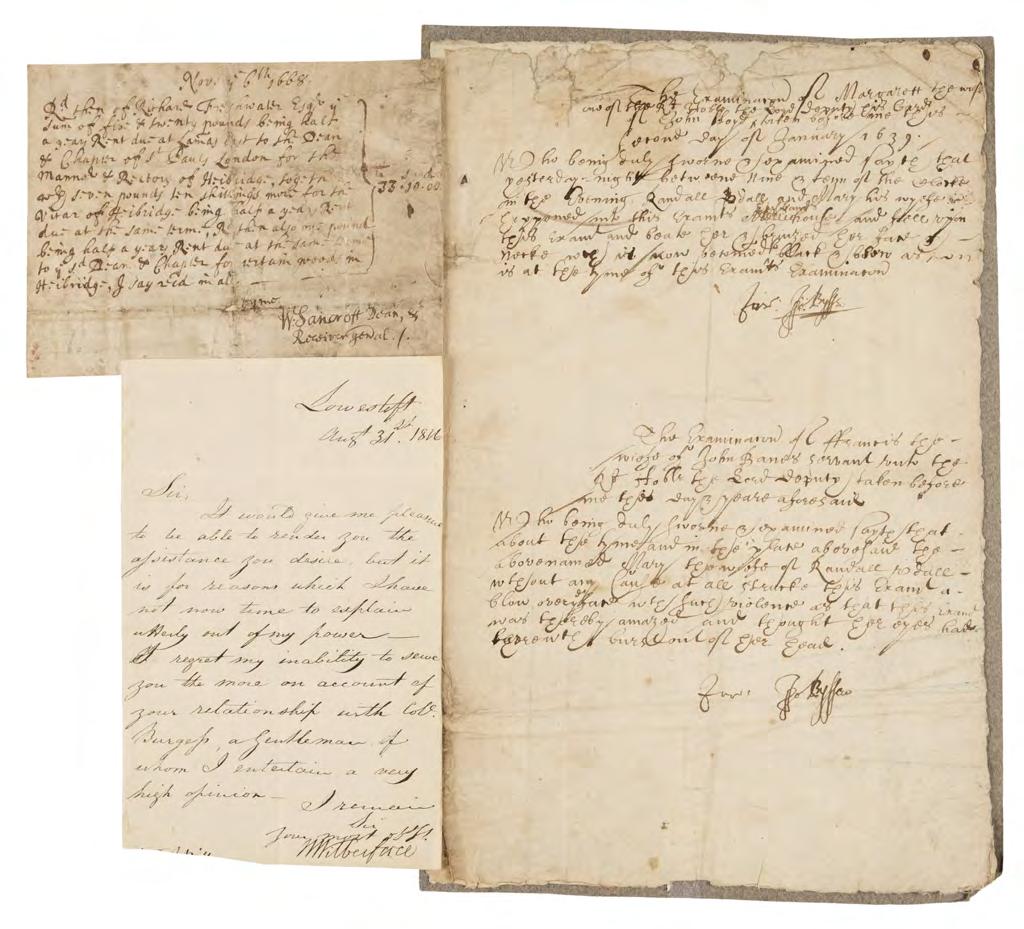 Nov. ye 6th 1668.
Rd then of Richard Freshwater Esqr ye
Sum of five & twenty pounds being half
a years Rent due at Lamas last to the Dean
& Chapter of St Pauls London for the
Mannor & Rectory of Heibridge, togeth
wth seven pounds ten shillings more for the
Vicar of Heibridge being half a years Rent
due at the same terme, Re then also one pound
being half a years Rent due at the same time
to ye sd Dean & Chapter for certain woods in
Heibridge, I say recd in all. —
33:10:00
by me
W. Sancroft Dean, &
Receiver genal. /.
Lowestoft
Augt 31st. 1816
Sir,
It would give me pleasure
to be able to render you the
assistance you desire, but it
is for reasons which I have
not now time to explain
utterly out of my power —
I regret my inability to serve
you the more on account of
your relationship with Col.
Burgess, a Gentleman of
whom I entertain a very
high opinion — I remain
Sir
your most
W Wilberforce
The Examinacon of Margarett the wife
of John Boyd taken before me this
second day of January 1639.
Who being duly sworne & examined sayth that
yesterday-night betweene Nine & tenn of the Clocke
in the Evening Randall Udall and Mary his wyfe
into this Exants house and fell upon
this Exant and beate her & bruized her face &
Necke wch is now becomed black & blew as
is at the tyme of this Exants Examinacon
Jur.
The Examinacon of ffrancis the —
wiefe of John Banes servant unto the
Rt Hoble the Lord Deputy taken before
me this day & yeare aforesaid
Who being duly sworne & examined sayth that
about the tyme and in the place abovesaid the —
abovenamed Mary the wiefe of Randall Udall —
without any cause at all strucke this Exant a-
blow over face with such violence as that this Exant
was thereby amazed and thought her eyes had
therewth burst out of her head.
Jur.